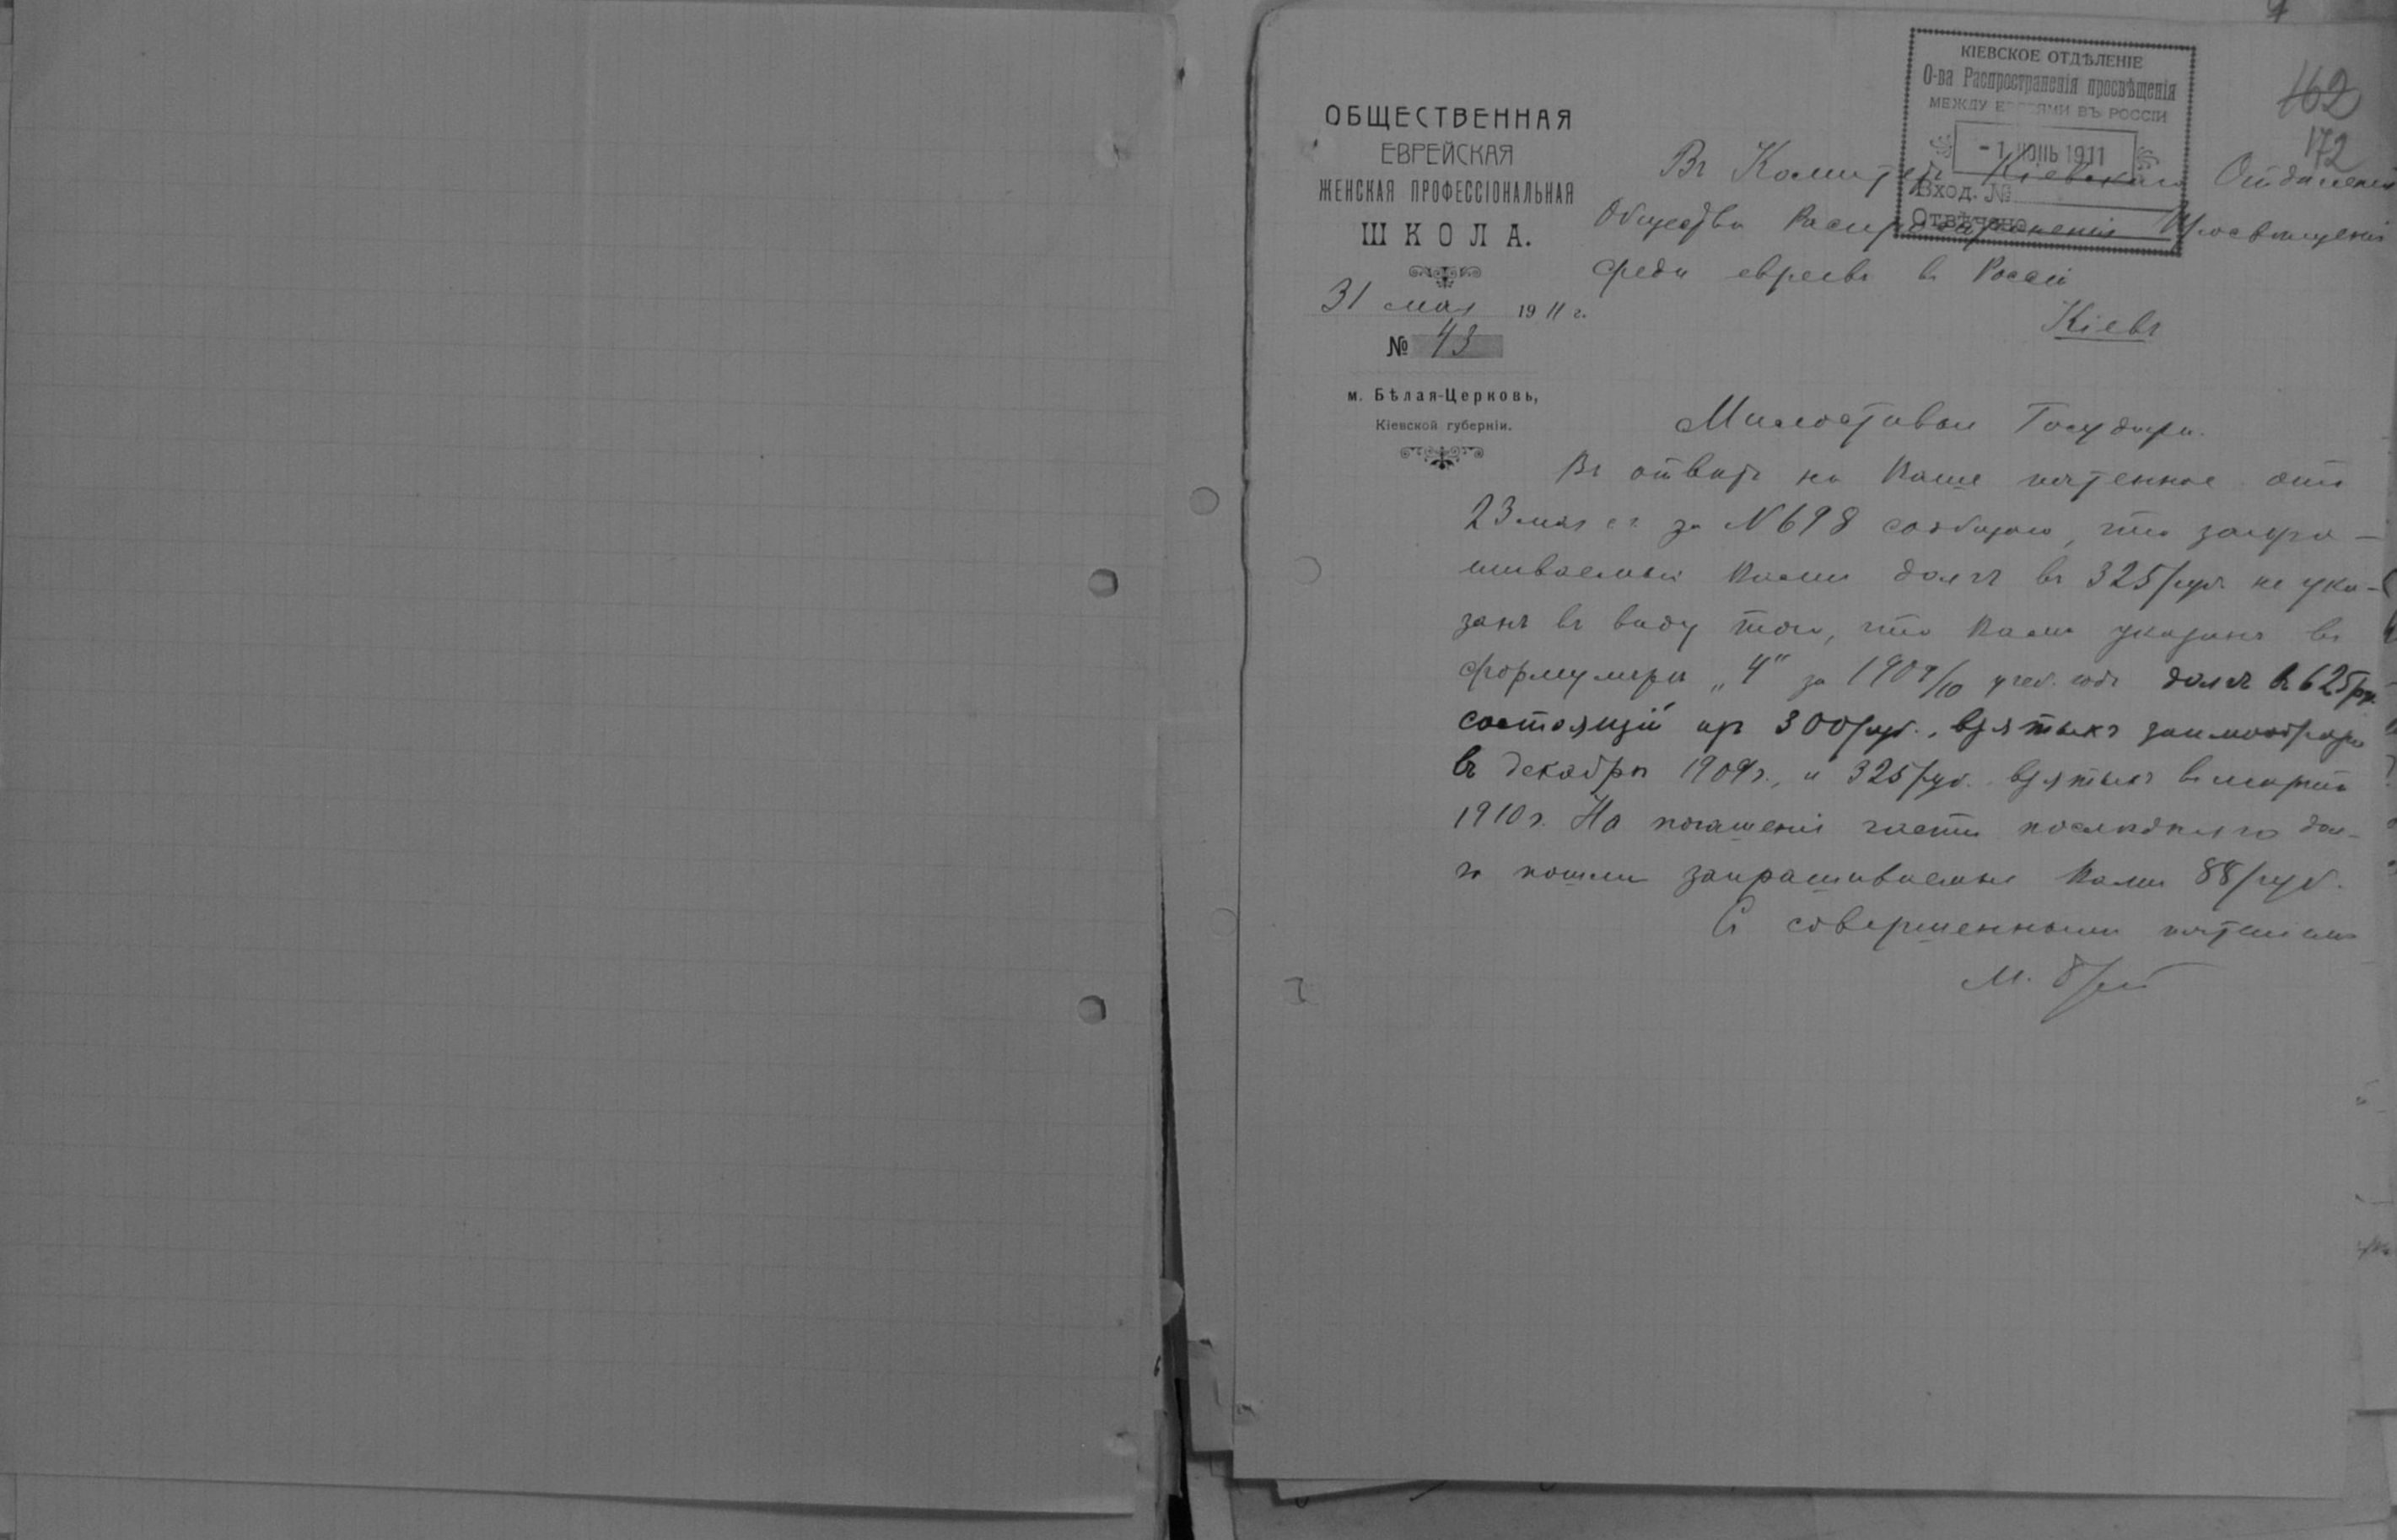 КІЕВСКОЕ ОТДѢЛЕНІЕ
О-ва Распространенія просвѣщенія
МЕЖДУ ЕВРЕЯМИ ВЪ РОССІИ
-1 ИЮНЬ 1911
Вход. №
Отвѣчено
162
172
ОБЩЕСТВЕННАЯ
ЕВРЕЙСКАЯ
ЖЕНСКАЯ ПРОФЕССІОНАЛЬНАЯ
ШКОЛА.
31 мая 1911 г.
№ 43
м. Бѣлая-Церковь,
Кіевской губерніи.
Въ Комитетъ Кіевскаго Отдѣленія
Общества Распространенія Просвѣщенія
среди евреевъ въ Россіи
Кіевъ
Милостивые Государи.
Въ отвѣтъ на Ваше почтенное отъ
23 мая с.г. за N 698 сообщаю, что запра-
шиваемый Вами долгъ въ 325 руб. не ука-
занъ въ виду того, что Вами указанъ въ
формулярѣ „4" за 1909/10 учеб. годъ долгъ въ 625 руб.
состоящій изъ 300 руб., взятыхъ заимообразно
въ декабрѣ 1909 г., и 325 руб. взятыхъ въ мартѣ
1910 г. На погашеніе части послѣдняго дол-
га пошли запрашиваемые Вами 88 руб.
Съ совершеннымъ почтеніемъ
М.